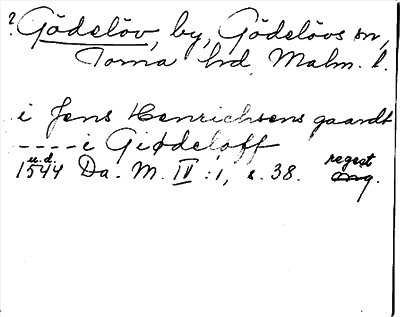 ? Gödelöv, by, Gödelövs sn,
Torna hd, Malm. l.
i Jens Henrichsens gaardt
---- i Giødeløff
1544 u.d. Da. M. IV:1, s. 38. regest
orig.